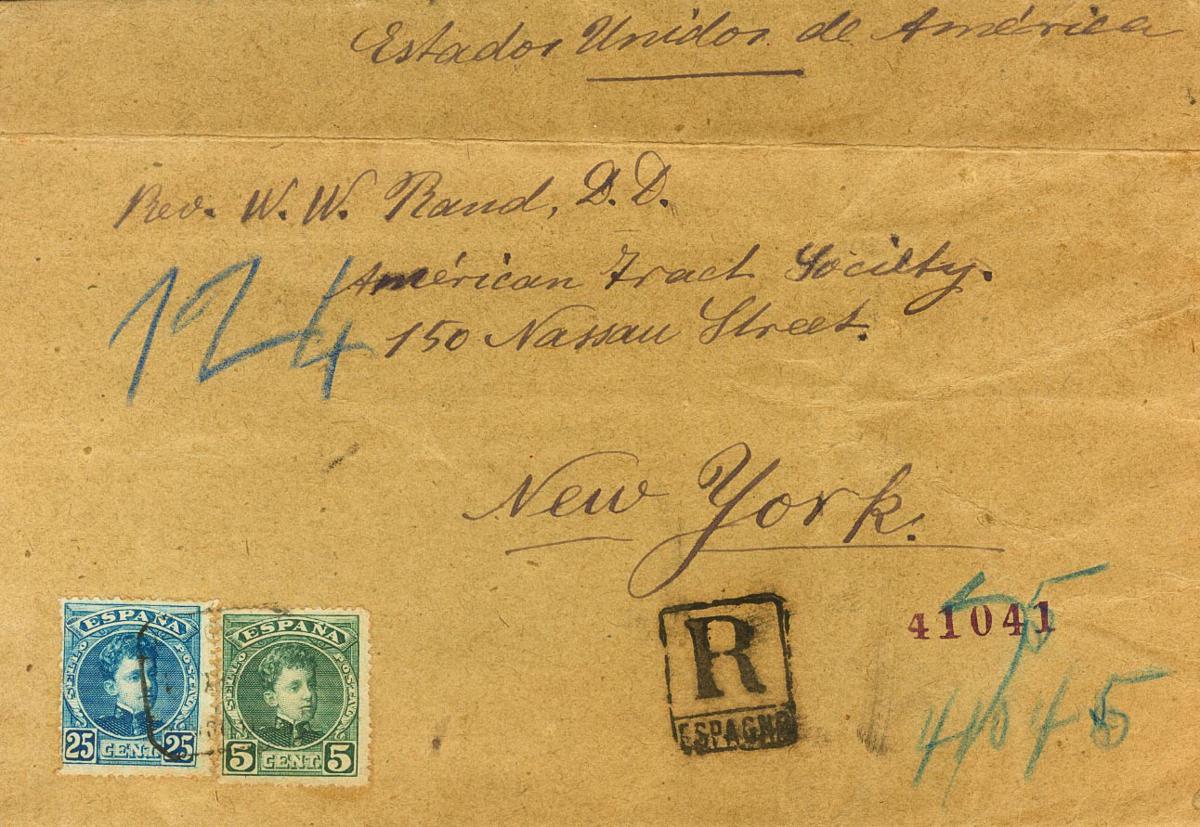 Estados Unidos de América
Rev. W. W. Rand, D.D.
Américan Tract Socielty.
150 Nassau Street.
124
New York.
ESPAÑA
SELLO POSTAL
25 CENT. 25
ESPAÑA
SELLO POSTAL
5 CENT. 5
R
ESPAGNE
41041